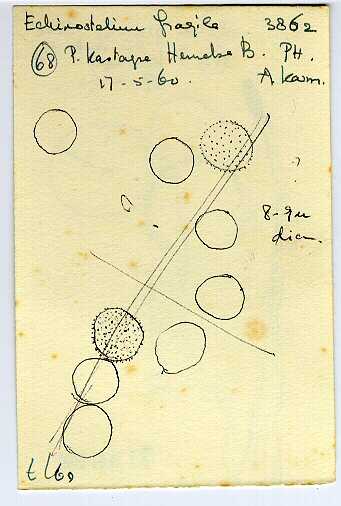 Echinostelium fragile 3862
68 P. Kastagne Hemelse B. PH.
17-5-60. A. 
8-9µ
diam.
t/60